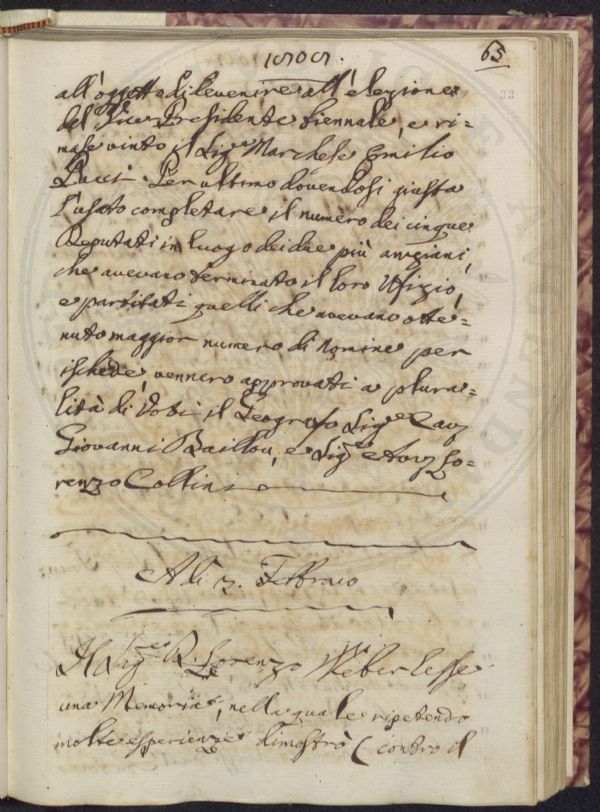 65
33
all'oggetto di devenire all'elezione
del Vice Presidente biennale, e ri=
mase vinto il Sig.e Marchese Emilio
Pucci. Per ultimo dovendosi giusta
l'usato completare il numero dei cinque
Deputati in luogo dei due più anziani,
che avevano terminato il loro Ufizio,
e partitati quelli che avevano otte=
nuto maggior numero di Nomine per
ischede, vennero approvati a plura=
lità di Voti il Geografo Sig.e Cav.
Giovanni Baillou, e Sig.e Avv. Lo=
renzo Collini
Adì 3. Febbraio
Il Sig.e D. Lorenzo Weber lesse
una Memoria, nella quale ripetendo
molte esperienze dimostrò (contro il